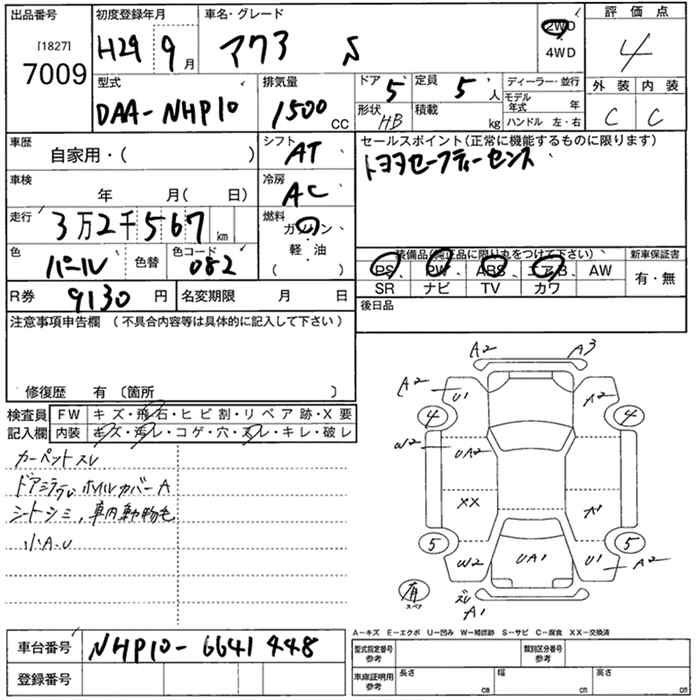 出品番号
[1827]
7009
初度登録年月
H29 9月
車名・グレード
アクア S
2WD
4WD
評価点
4
型式
DAA-NHP10
排気量
1500 CC
ドア 5
定員 5 人
形状 HB
積載 kg
ディーラー・並行
モデル年式 年
ハンドル 左・右
外装 内装
C C
車歴
自家用・( )
シフト
AT
セールスポイント(正常に機能するものに限ります)
トヨタセーフティーセンス
車検
年 月( 日)
冷房
AC
走行
3万2千567 km
燃料
ガソリン
・
軽・油
( )
色
パール
色替
色コード
082
装備品(純正品に限り丸をつけて下さい)
PS PW ABS エアB AW
SR ナビ TV カワ
新車保証書
有・無
R券 9130 円
名変期限 月 日
後日品
注意事項申告欄 (不具合内容等は具体的に記入して下さい)
修復歴 有 〔箇所 〕
検査員
記入欄
FW キズ・飛石・ヒビ割・リペア跡・X要
内装 キズ・汚レ・コゲ・穴・スレ・キレ・破レ
カーペットスレ
ホイルカバーA
シートシミ、車内動物毛
小A・U
A2 A3
A2 U1 A2
4 4
W2 UA2
XX A1
5 5
W2 UA1 U1 A2
有
スペア
ズレ
A1
A-キズ E-エクボ U-凹み W-補修跡 S-サビ C-腐食 XX-交換済
車台番号
NHP10-6641448
登録番号
型式指定番号
参考
類別区分番号
参考
車庫証明用
参考
長さ cm
幅 cm
高さ cm